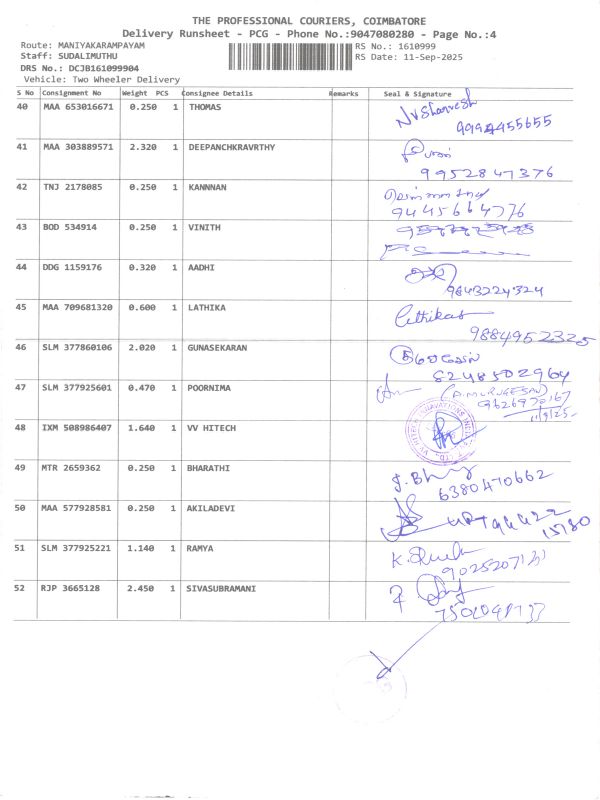 THE PROFESSIONAL COURIERS, COIMBATORE
Delivery Runsheet - PCG - Phone No.:9047080280 - Page No.:4
Route: MANIYAKARAMPAYAM RS No.: 1610999
Staff: SUDALIMUTHU RS Date: 11-Sep-2025
DRS No.: DCJB161099904
Vehicle: Two Wheeler Delivery
S No Consignment No Weight PCS Consignee Details Remarks Seal & Signature
40 MAA 653016671 0.250 1 THOMAS
41 MAA 303889571 2.320 1 DEEPANCHKRAVRTHY
9952847376
42 TNJ 2178085 0.250 1 KANNNAN
9445664776
43 BOD 534914 0.250 1 VINITH
44 DDG 1159176 0.320 1 AADHI
9843224324
45 MAA 709681320 0.600 1 LATHIKA
Lithikas
9884952325
46 SLM 377860106 2.020 1 GUNASEKARAN
8248502964
47 SLM 377925601 0.470 1 POORNIMA
(A.MURUGESAN)
9626970167
11/9/25
48 IXM 508986407 1.640 1 VV HITECH
49 MTR 2659362 0.250 1 BHARATHI
6380470662
50 MAA 577928581 0.250 1 AKILADEVI
15780
51 SLM 377925221 1.140 1 RAMYA
52 RJP 3665128 2.450 1 SIVASUBRAMANI